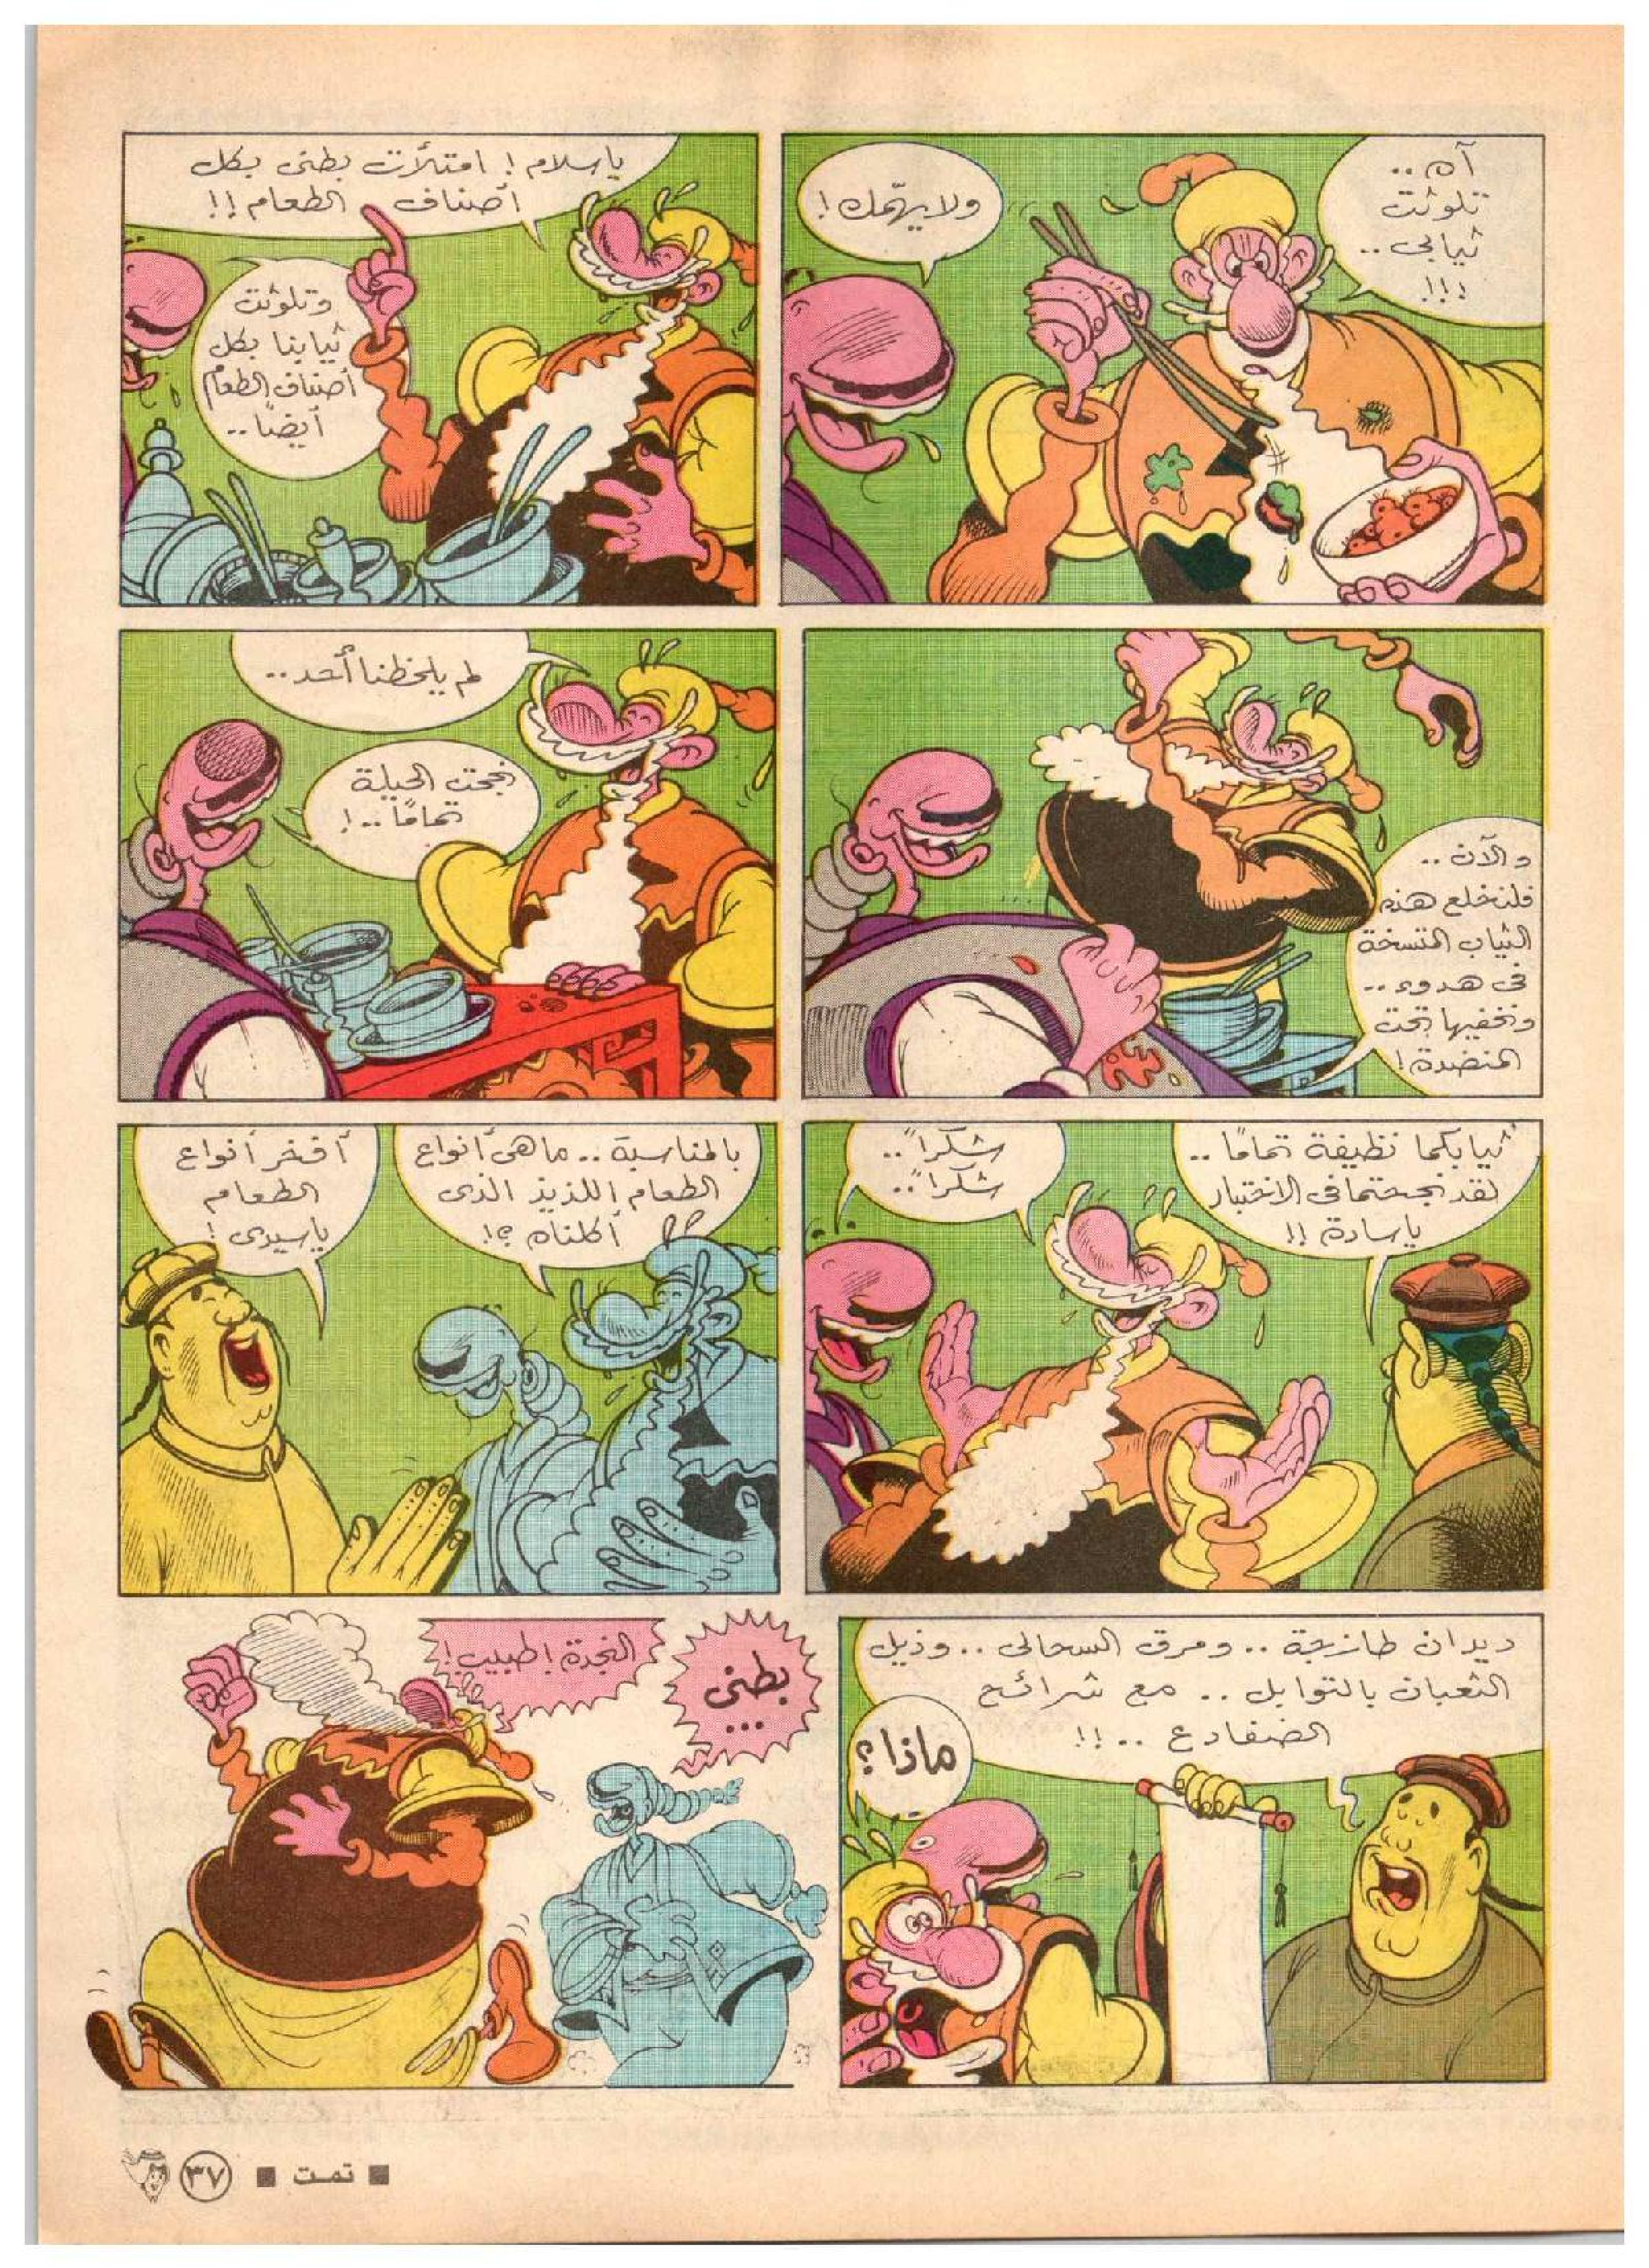 آه ..
تلوثت
ثيابى ..
!!!
ولا يهمّك !
ياسلام ! امتلأت بطنى بكل
أصناف الطعام !!
وتلوثت
ثيابنا بكل
أصناف الطعام
أيضًا ..
والآن ..
فلنخلع هذه
الثياب المتسخة
فى هدوء ..
ونخفيها تحت
المنضدة !
لم يلحظنا أحد ..
نجحت الحيلة
تمامًا .. !
ثيابكما نظيفة تمامًا ..
لقد نجحتما فى الاختبار
ياسادة !!
شكرًا ..
شكرًا ..
بالمناسبة .. ما هى أنواع
الطعام اللذيذ الذى
أكلناه ؟!
أفخر أنواع
الطعام
ياسيدى !
ديدان طازجة .. ومرق السحالى .. وذيل
الثعبان بالتوابل .. مع شرائح
الضفادع .. !!
ماذا ؟
بطنى
...
النجدة ! طبيب !
تمت
٣٧